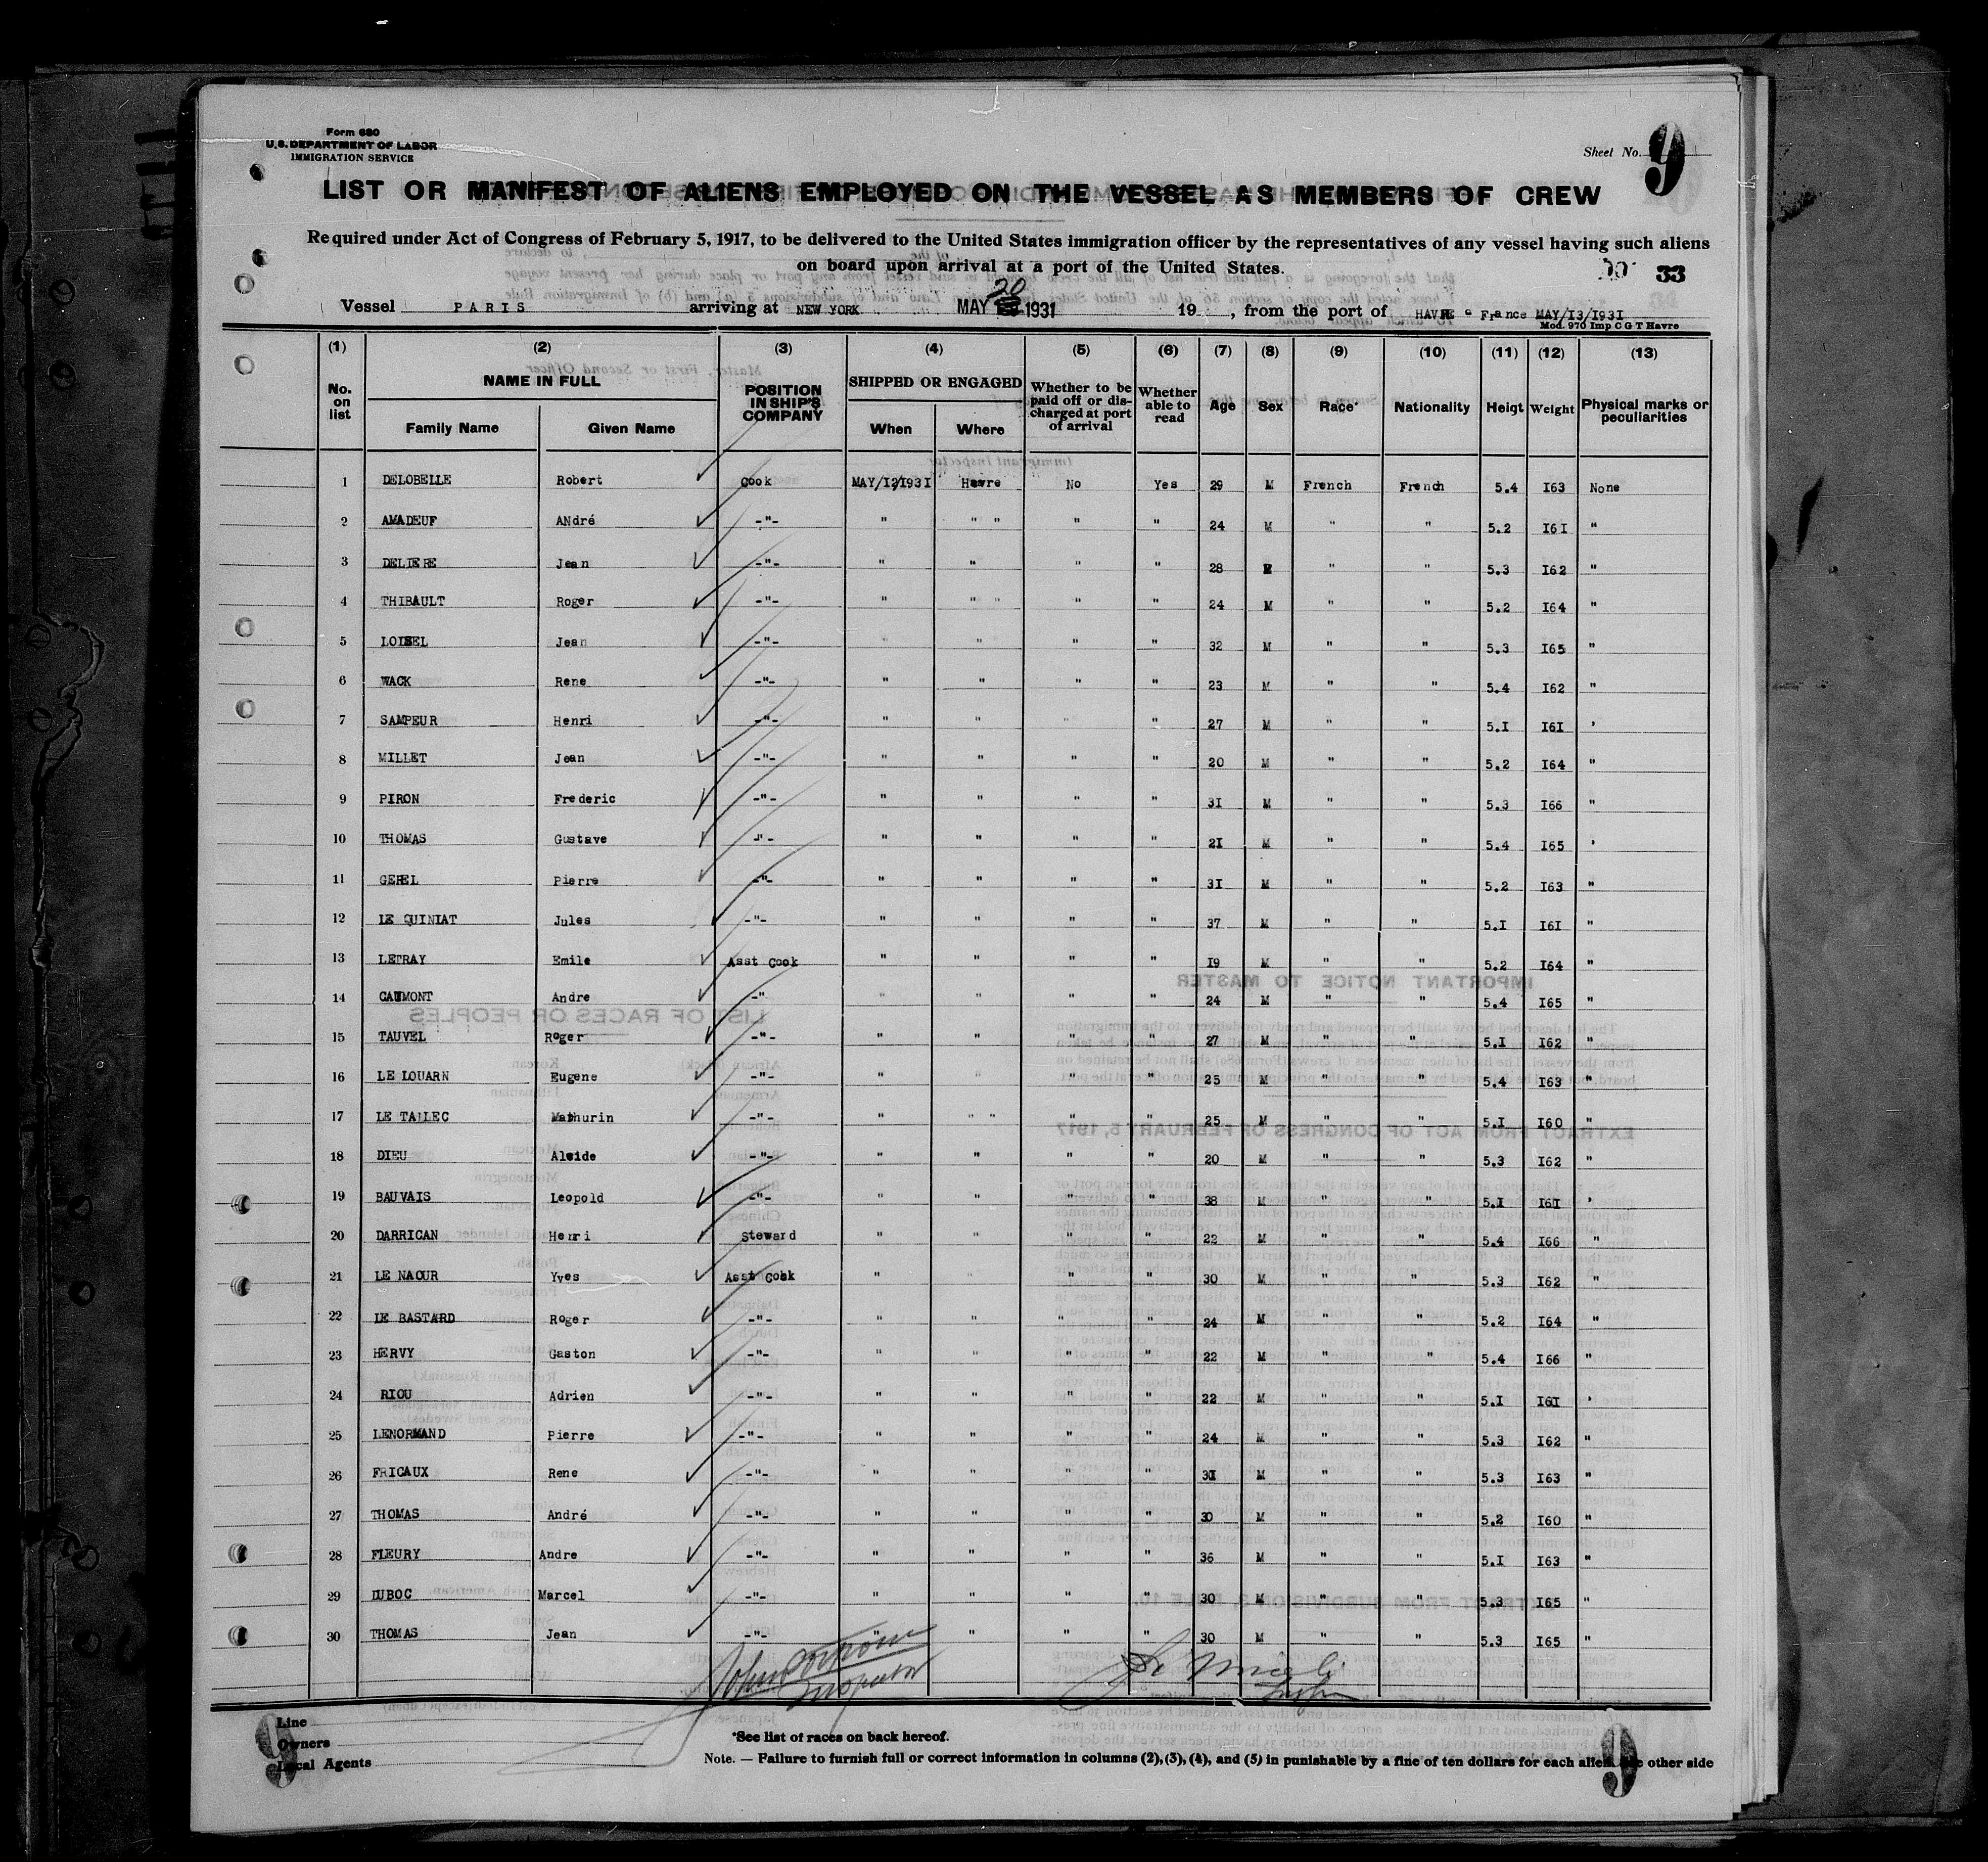 Form 680
U.S. DEPARTMENT OF LABOR
IMMIGRATION SERVICE
Sheet No. 9
LIST OR MANIFEST OF ALIENS EMPLOYED ON THE VESSEL AS MEMBERS OF CREW
Required under Act of Congress of February 5, 1917, to be delivered to the United States immigration officer by the representatives of any vessel having such aliens
on board upon arrival at a port of the United States.
33
Vessel PARIS arriving at NEW YORK MAY 20 1931 19 , from the port of HAVRE - France MAY/13/1931
Mod. 970 Imp C G T Havre
(1) (2) (3) (4) (5) (6) (7) (8) (9) (10) (11) (12) (13)
No. on list NAME IN FULL Family Name Given Name POSITION IN SHIP'S COMPANY SHIPPED OR ENGAGED When Where Whether to be paid off or discharged at port of arrival Whether able to read Age Sex Race* Nationality Heigt Weight Physical marks or peculiarities
1 DELOBELLE Robert Cook MAY/12/1931 Havre No Yes 29 M French French 5.4 I63 None
2 AMADEUF ANdré -"- " " " " " 24 M " " 5.2 I6I "
3 DELIERE Jean -"- " " " " 28 M " " 5.3 I62 "
4 THIBAULT Roger -"- " " " " " 24 M " " 5.2 I64 "
5 LOISEL Jean -"- " " " " 32 M " " 5.3 I65 "
6 WACK Rene -"- " " " " 23 M " " 5.4 I62 "
7 SAMPEUR Henri -"- " " " " 27 M " " 5.I I6I '
8 MILLET Jean -"- " " " " 20 M " " 5.2 I64 "
9 PIRON Frederic -"- " " " " 3I M " " 5.3 I66 "
10 THOMAS Gustave -"- " " " " 2I M " " 5.4 I65 '
11 GEREL Pierre -"- " " " " 3I M " " 5.2 I63 "
12 LE QUINIAT Jules -"- " " " " 37 M " " 5.I I6I "
13 LETRAY Emile Asst Cook " " " " I9 M " " 5.2 I64 "
14 CAUMONT Andre -"- " " " " 24 M " " 5.4 I65 "
15 TAUVEL Roger -"- " " " " 27 M " " 5.I I62 "
16 LE LOUARN Eugene -"- " " " " 25 M " " 5.4 I63 "
17 LE TALLEC Mathurin -"- " " " " " 25 M " " 5.I I60 "
18 DIEU Alcide -"- " " " " 20 M " " 5.3 I62 "
19 BAUVAIS Leopold -"- " " " " 38 M " " 5.I I6I '
20 DARRICAN Henri Steward " " " " 22 M " " 5.4 I66 "
21 LE NAOUR Yves Asst Cook " " " " 30 M " " 5.3 I62 "
22 LE BASTARD Roger -"- " " " " 24 M " " 5.2 I64 "
23 HERVY Gaston -"- " " " " 22 M " " 5.4 I66 "
24 RIOU Adrien -"- " " " " 22 M " " 5.I I6I '
25 LENORMAND Pierre -"- " " " " 24 M " " 5.3 I62 "
26 FRICAUX Rene -"- " " " " 3I M " " 5.3 I63 "
27 THOMAS André -"- " " " " 30 M " " 5.2 I60 "
28 FLEURY Andre -"- " " " " 36 M " " 5.I I63 "
29 DUBOC Marcel -"- " " " " 30 M " " 5.3 I65 "
30 THOMAS Jean -"- " " " " 30 M " " 5.3 I65 "
John
Inspector
Line
Owners
Local Agents
*See list of races on back hereof.
Note. — Failure to furnish full or correct information in columns (2), (3), (4), and (5) in punishable by a fine of ten dollars for each alien other side
9 9